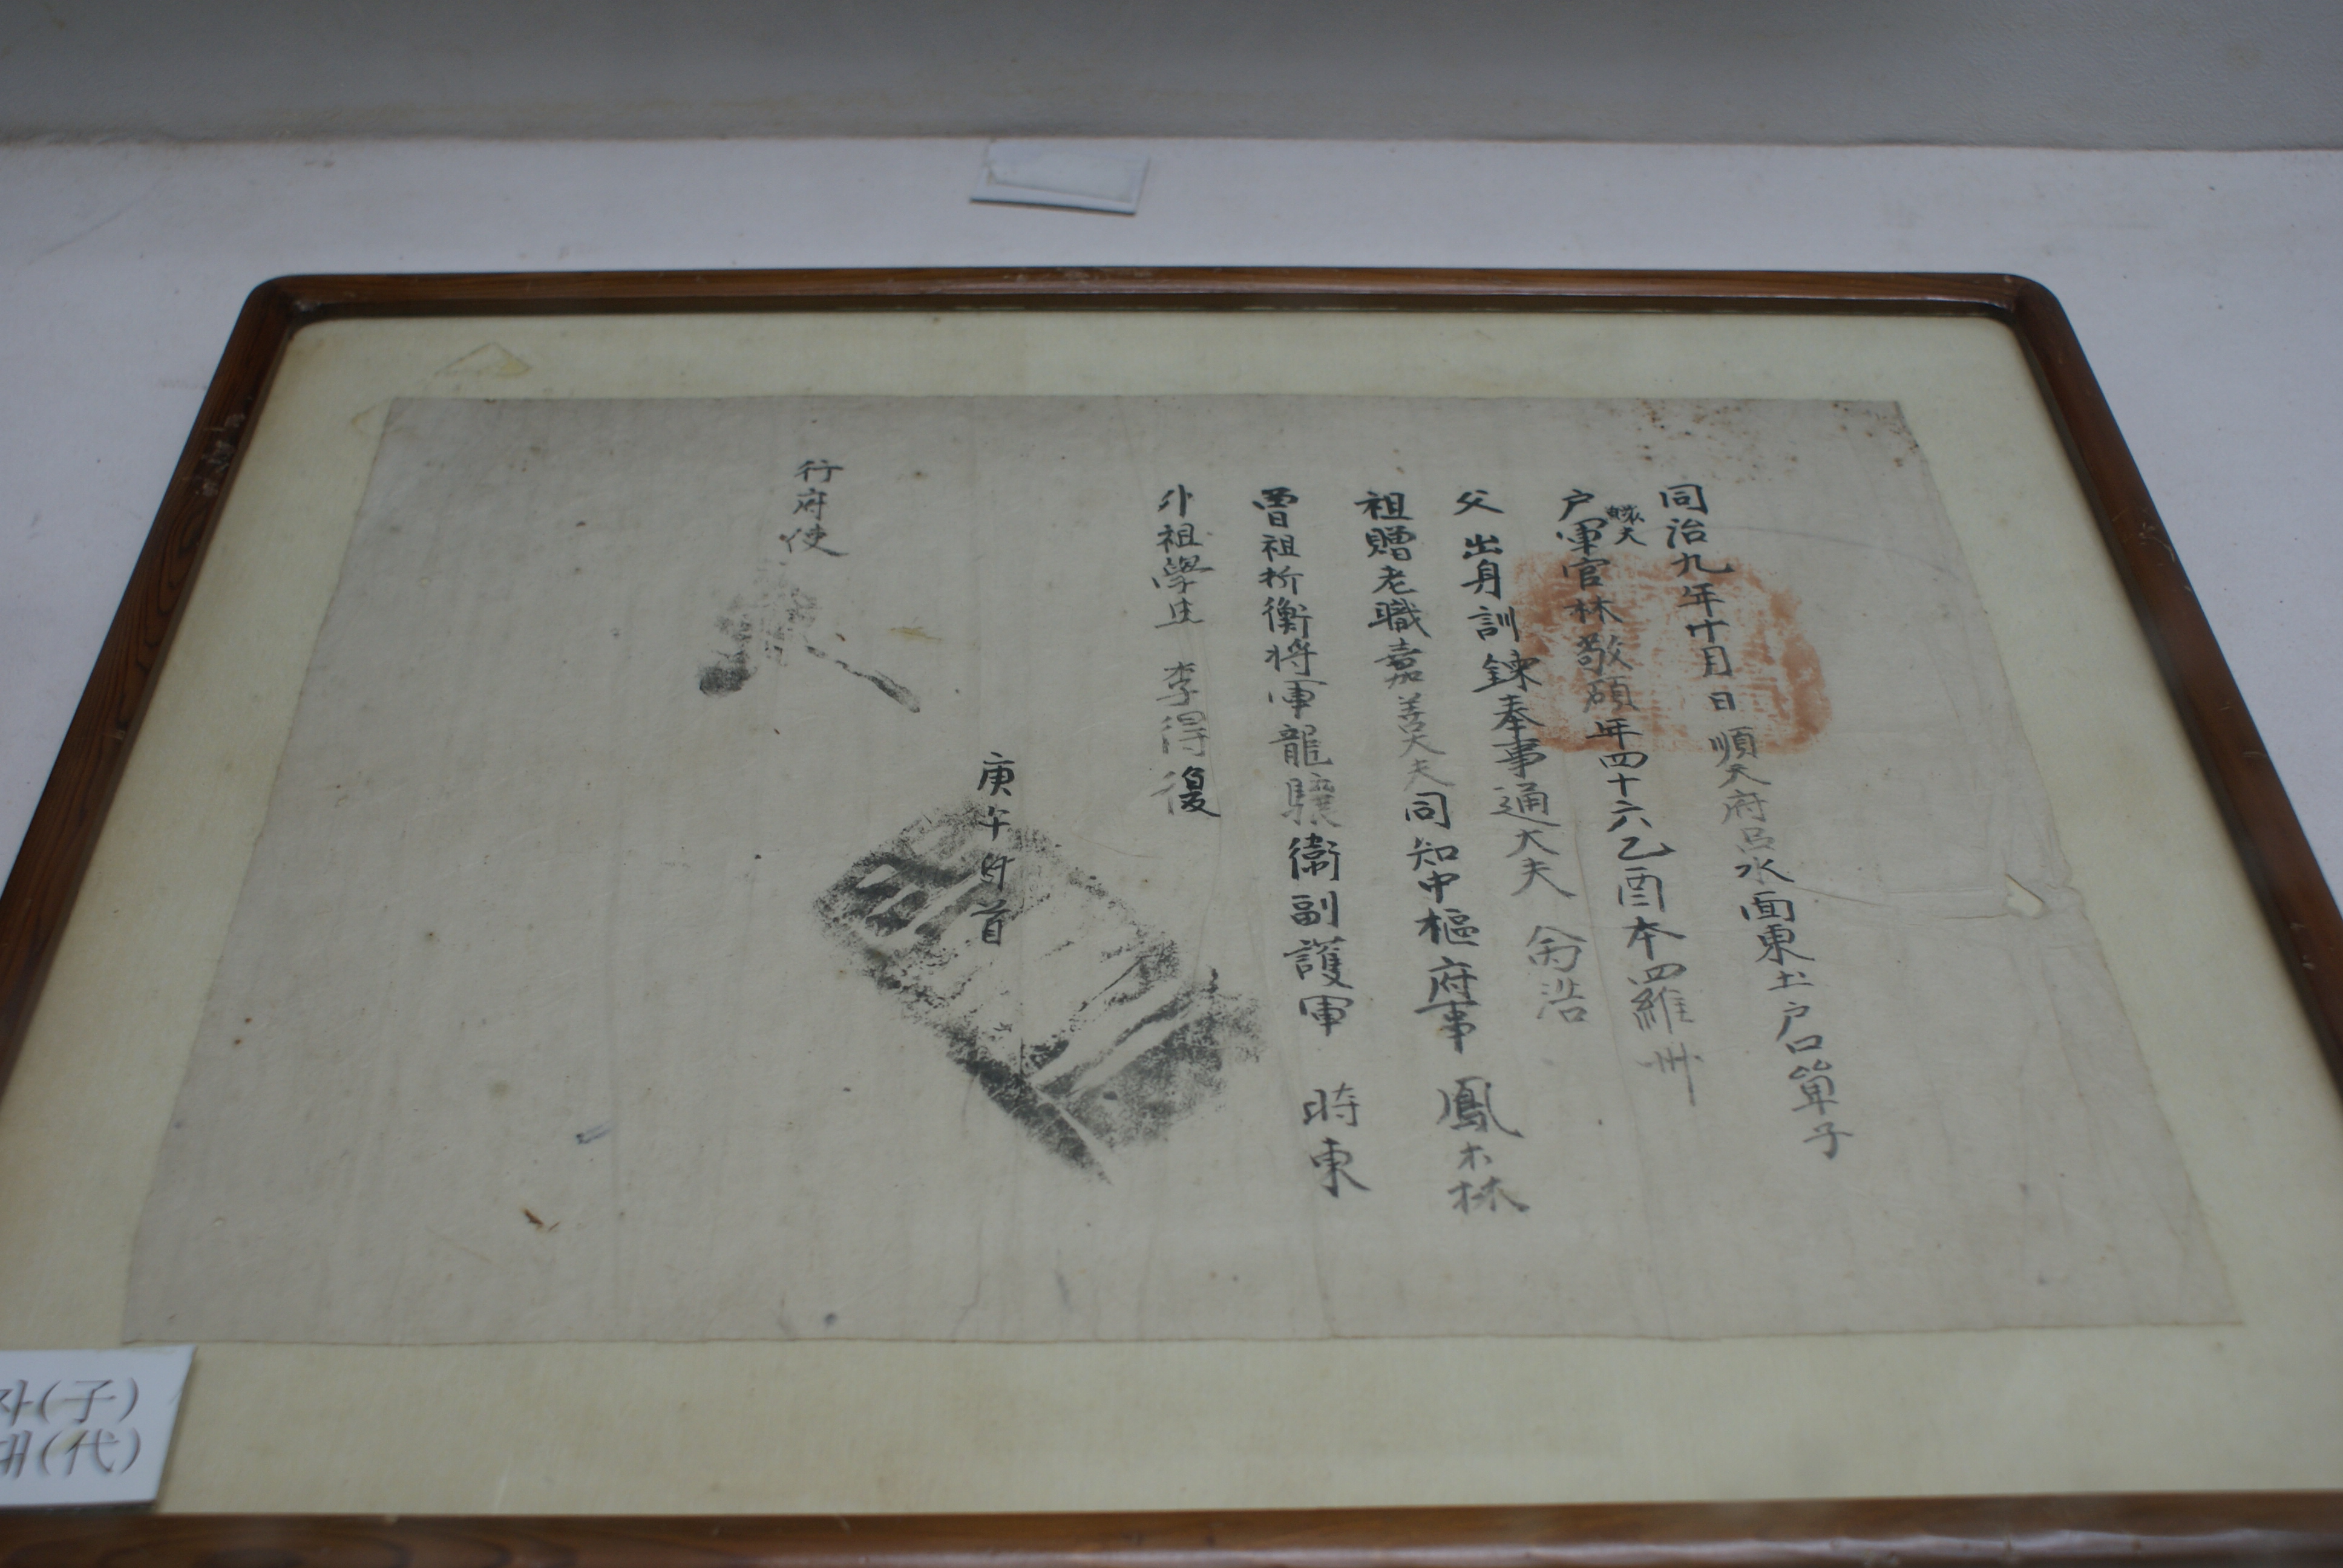 同治九年十月 日 順天府呂水面東土 户口單子
户軍官林敬碩 年四十六乙酉本羅州
父 出身訓鍊奉事通大夫
祖贈老職嘉善大夫同知中樞府事 鳳林
曾祖折衝將軍龍驤衛副護軍 時東
外祖學生 李得復
庚午
行府使
자(子)
대(代)